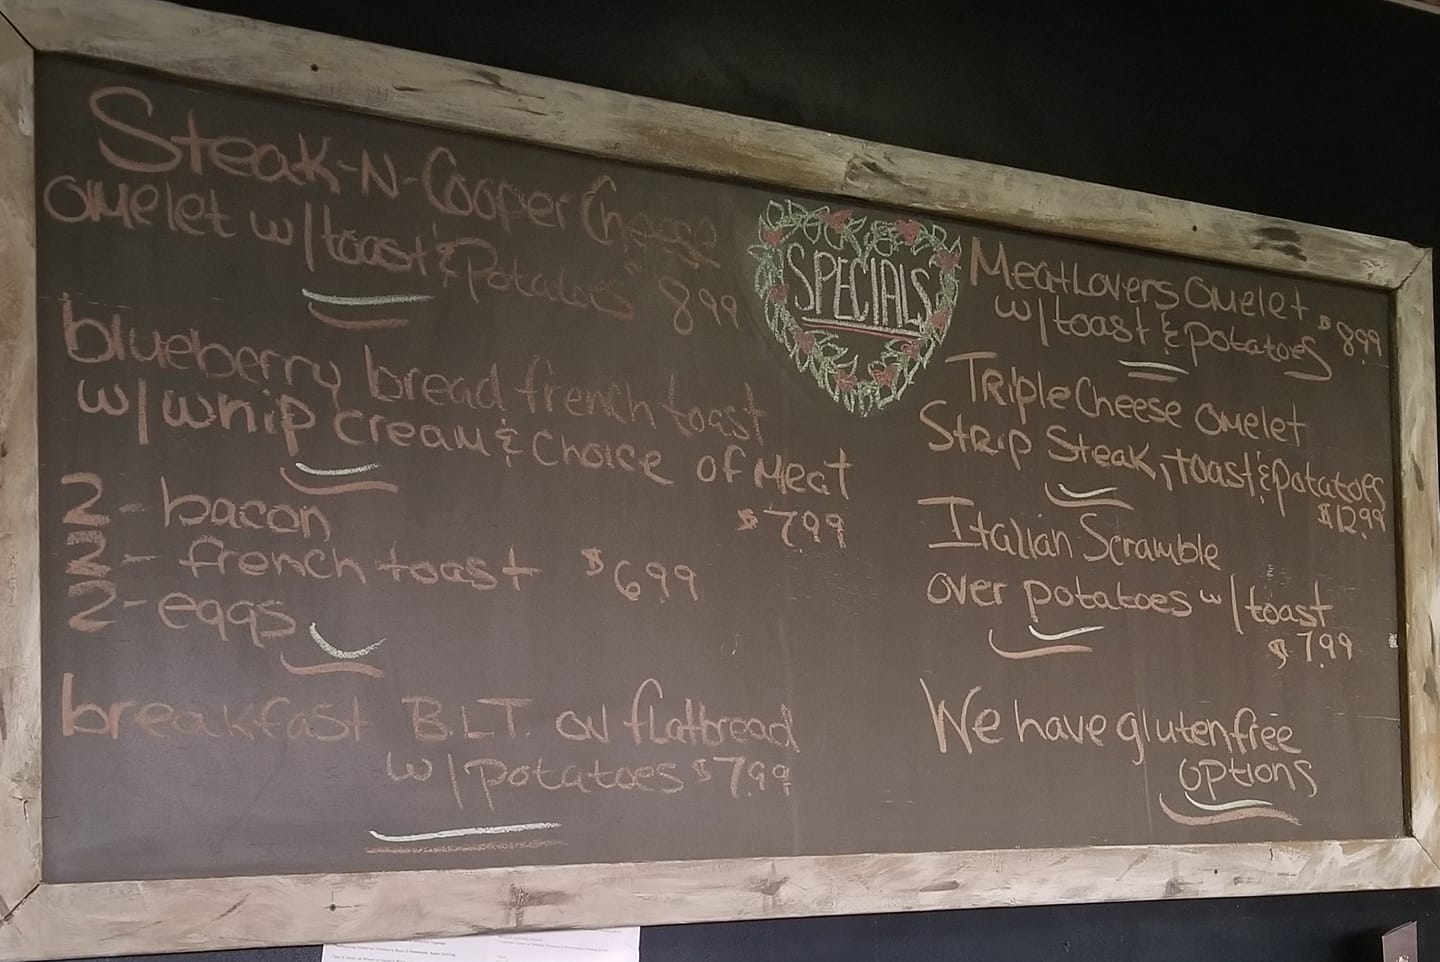 Steak-N-Cooper Cheese
omelet w/toast & Potatoes 8.99
blueberry bread french toast
w/whip cream & Choice of Meat
$7.99
2 - bacon
2 - french toast $6.99
2 - eggs
breakfast B.L.T. on flatbread
w/potatoes $7.99
SPECIALS
MeatLovers omelet
w/toast & potatoes $8.99
Triple Cheese omelet
Strip Steak, toast & potatoes
$12.99
Italian Scramble
over potatoes w/toast
$7.99
We have gluten free
options